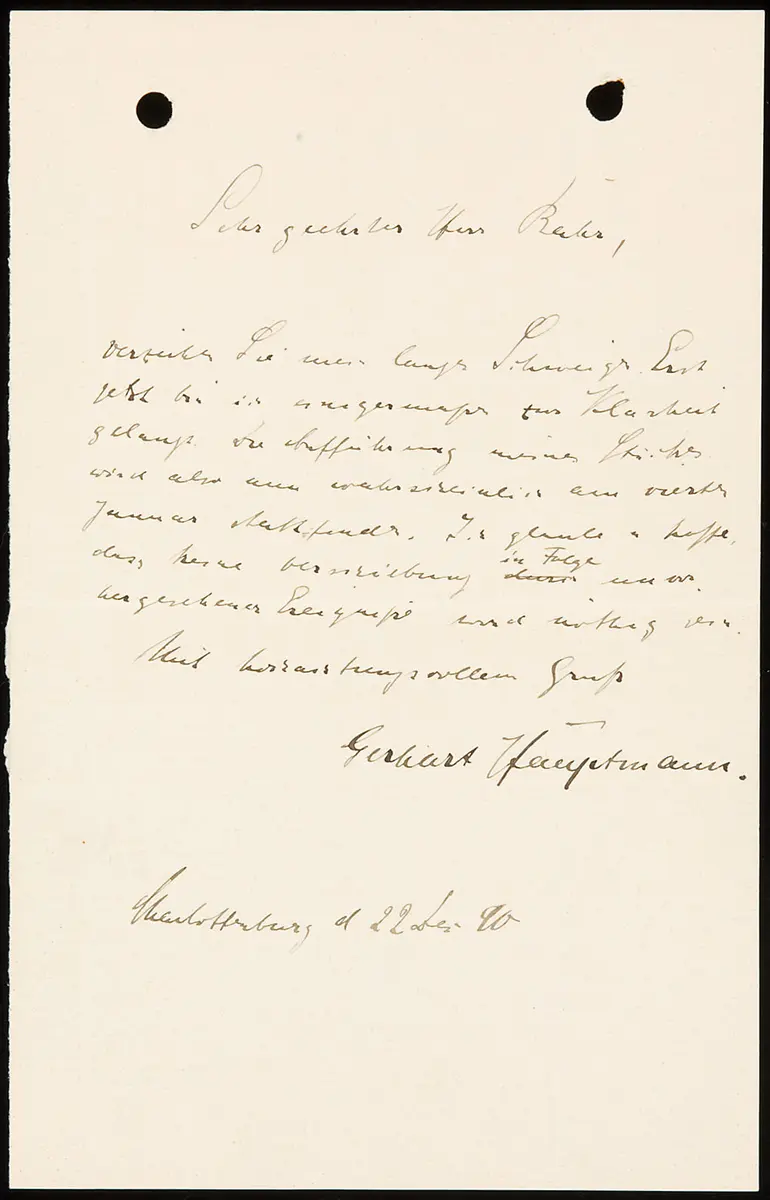 Sehr geehrter Herr Bahr,
verzeihen Sie mein langes Schweigen. Erst
jetzt bin ich einigermaßen zur Klarheit
gelangt. Die Aufführung meines Stückes
wird also nun wahrscheinlich am vierten
Januar stattfinden. Ich glaube u hoffe,
dass keine Verschiebung in Folge unvor-
hergesehener Ereigniße wird nöthig sein.
Mit hochachtungsvollem Gruß
Gerhart Hauptmann.
Charlottenburg d 22 Dez 90